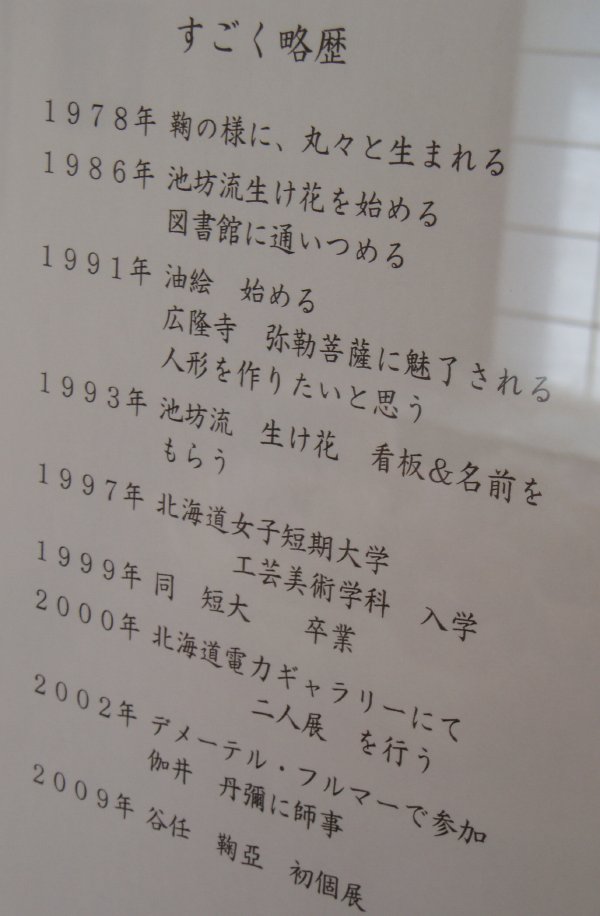 すごく略歴
1978年 鞠の様に、丸々と生まれる
1986年 池坊流生け花を始める
図書館に通いつめる
1991年 油絵 始める
広隆寺 弥勒菩薩に魅了される
人形を作りたいと思う
1993年 池坊流 生け花 看板&名前を
もらう
1997年 北海道女子短期大学
工芸美術学科 入学
1999年 同 短大 卒業
2000年 北海道電力ギャラリーにて
二人展 を行う
2002年 デメーテル・フルマーで参加
伽井 丹彌に師事
2009年 谷任 鞠亜 初個展